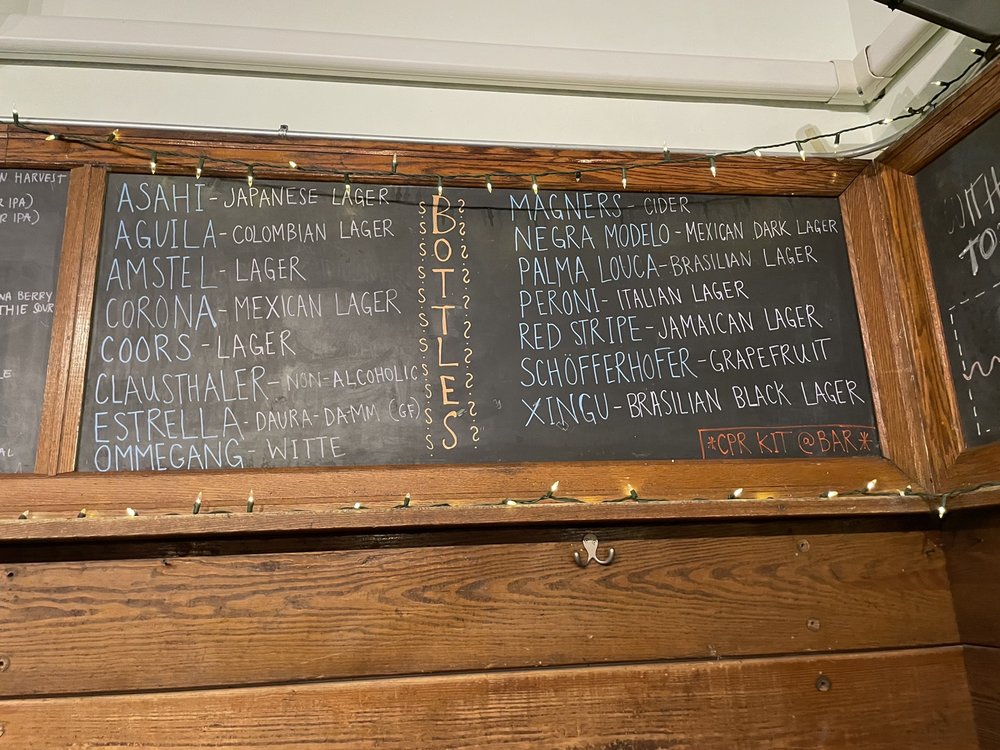 N HARVEST
R IPA)
R IPA)
NA BERRY
THIE SOUR
LE
AL
ASAHI - JAPANESE LAGER
AGUILA - COLOMBIAN LAGER
AMSTEL - LAGER
CORONA - MEXICAN LAGER
COORS - LAGER
CLAUSTHALER - NON-ALCOHOLIC
ESTRELLA - DAURA-DAMM (GF)
OMMEGANG - WITTE
BOTTLES
MAGNERS - CIDER
NEGRA MODELO - MEXICAN DARK LAGER
PALMA LOUCA - BRASILIAN LAGER
PERONI - ITALIAN LAGER
RED STRIPE - JAMAICAN LAGER
SCHÖFFERHOFER - GRAPEFRUIT
XINGU - BRASILIAN BLACK LAGER
*CPR KIT @ BAR*
TO